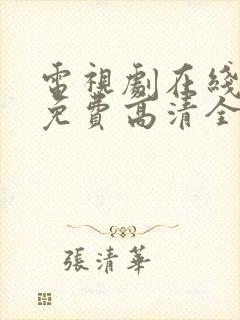 電視劇在綫
免費高清全
張清華